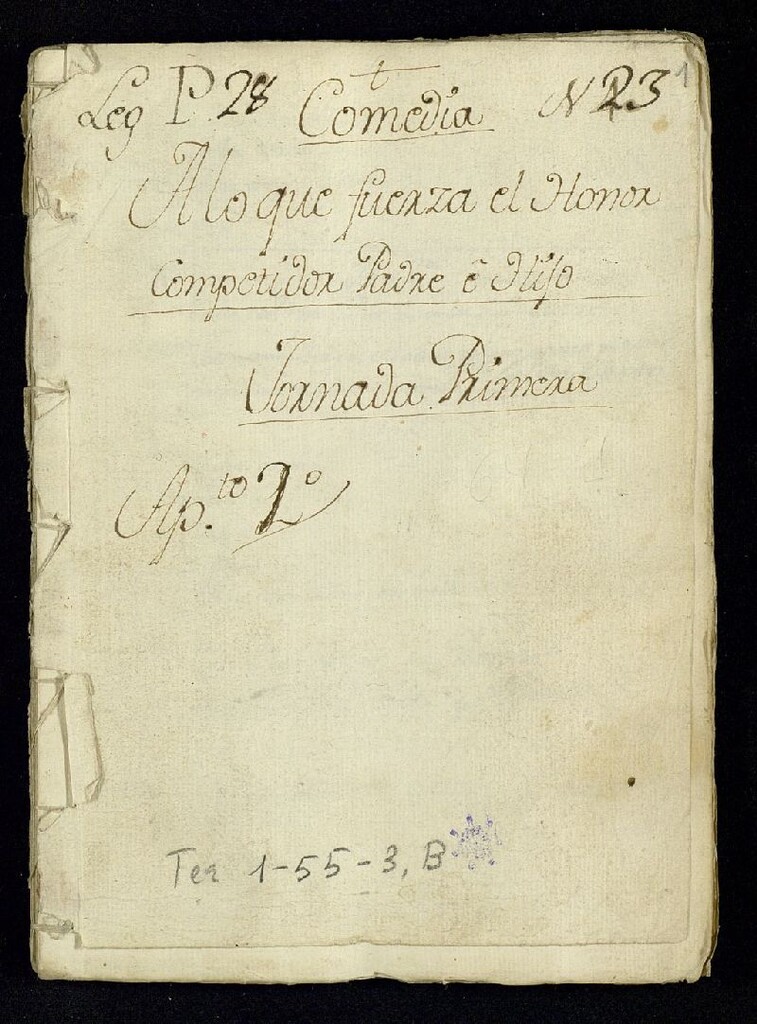 Leg P. 28 Comedia N 23 1
A lo que fuerza el Honor
Competidor Padre ē Hijo
Jornada Primera
Ap.to 2º
Tea 1-55-3, B